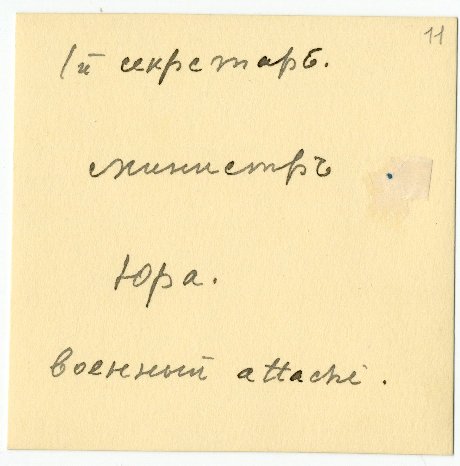 11
1й секретарь.
министръ
Юра.
военный attaché.